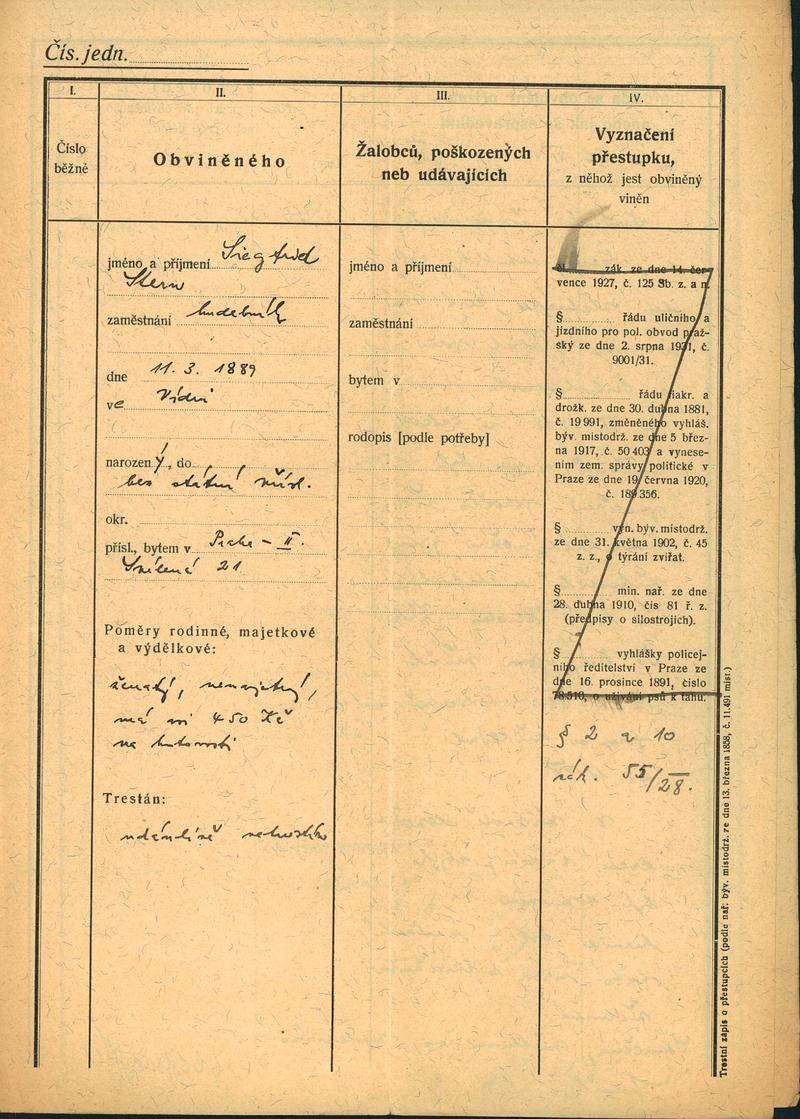 Čís. jedn.
I.
Číslo
běžné
II.
Obviněného
III.
Žalobců, poškozených
neb udávajících
IV.
Vyznačení
přestupku,
z něhož jest obviněný
viněn
jméno a příjmení Siegfried
Stern
zaměstnání hudebník
dne 11. 3. 1889
ve Vídni
narozený, do
bez státní přísl.
okr.
přísl., bytem v Praha - II.
21
Poměry rodinné, majetkové
a výdělkové:
ženatý, nemajetný,
má 450 Kč
na hotovosti
Trestán:
údánlivě netrestán
jméno a příjmení
zaměstnání
bytem v
rodopis [podle potřeby]
čl. zák. ze dne 14. čer-
vence 1927, č. 125 Sb. z. a n.
§ řádu uličního a
jízdního pro pol. obvod praž-
ský ze dne 2. srpna 1931, č.
9001/31.
§ řádu fiakr. a
drožk. ze dne 30. dubna 1881,
č. 19991, změněného vyhláš.
býv. místodrž. ze dne 5 břez-
na 1917, č. 50403 a vynese-
ním zem. správy politické v
Praze ze dne 19. června 1920,
č. 189356.
§ vyn. býv. místodrž.
ze dne 31. května 1902, č. 45
z. z., o týrání zvířat.
§ min. nař. ze dne
28. dubna 1910, čís 81 ř. z.
(předpisy o silostrojích).
§ vyhlášky policej-
ního ředitelství v Praze ze
dne 16. prosince 1891, číslo
78510, o užívání psů k tahu.
§ 2 a 10
zák. 55/28.
Trestní zápis o přestupcích (podle nař. býv. místodrž. ze dne 13. března 1858, č. 11.491 míst.)